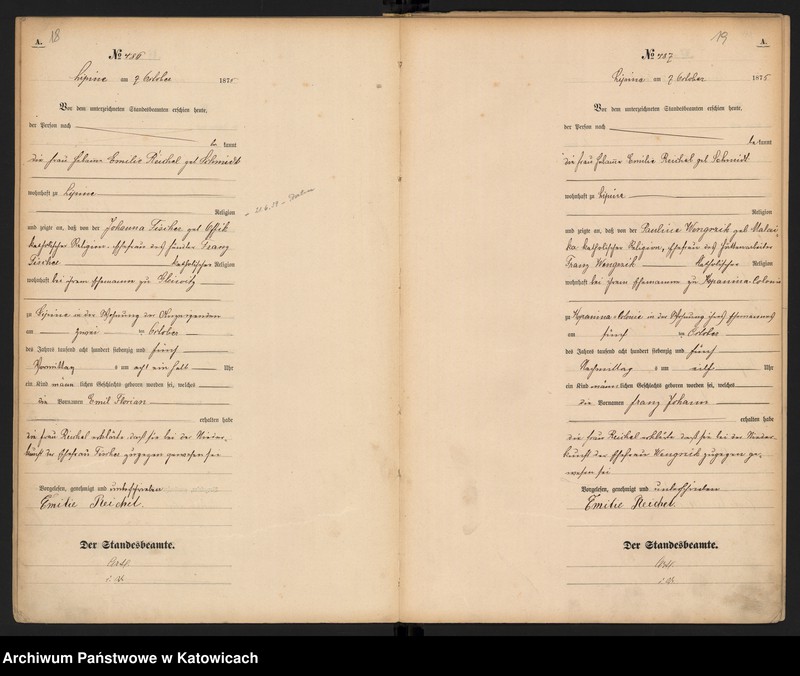 18
A.
№ 486
Lipine am 7 October 1875
Vor dem unterzeichneten Standesbeamten erschien heute,
der Person nach
be kannt
die Frau Hebamme Emilie Reichel geb Schmidt
wohnhaft zu Lipine
Religion
und zeigte an, daß von der Johanna Fischer geb
katholischer Religion, Ehefrau des Franz
Fischer katholischer Religion
wohnhaft bei ihrem Ehemanne zu Gleiwitz
zu Lipine in der Wohnung der
am zwei ten October
des Jahres tausend acht hundert siebenzig und fünf
Vormittag s um acht ein halb Uhr
ein Kind männ lichen Geschlechts geboren worden sei, welches
die Vornamen Emil Florian
erhalten habe
die Frau Reichel erklärte daß sie bei der Nieder-
kunft der Ehefrau Fischer zugegen gewesen sei
Vorgelesen, genehmigt und unterschrieben
Emilie Reichel.
Der Standesbeamte.
19
A.
№ 487
Lipine am 7 October 1875
Vor dem unterzeichneten Standesbeamten erschien heute,
der Person nach
be kannt
die Frau Hebamme Emilie Reichel geb Schmidt
wohnhaft zu Lipine
Religion
und zeigte an, daß von der Pauline Wengrzik geb
katholischer Religion, Ehefrau des Hüttenarbeiter
Franz Wengrzik katholischer Religion
wohnhaft bei ihrem Ehemanne zu Kopanina-Colonie
zu Kopanina-Colonie in der Wohnung ihres Ehemannes
am fünf ten October
des Jahres tausend acht hundert siebenzig und fünf
Nachmittag s um Uhr
ein Kind männ lichen Geschlechts geboren worden sei, welches
die Vornamen Franz Johann
erhalten habe
die Frau Reichel erklärte daß sie bei der Nieder-
kunft der Ehefrau Wengrzik zugegen ge-
wesen sei
Vorgelesen, genehmigt und unterschrieben
Emilie Reichel.
Der Standesbeamte.
Archiwum Państwowe w Katowicach